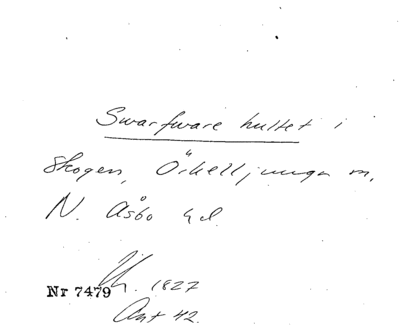 Swarfware hultet i
skogen, Örkelljunga sn,
N. Åsbo hd.
Nr 7479 1827
Ant 42.